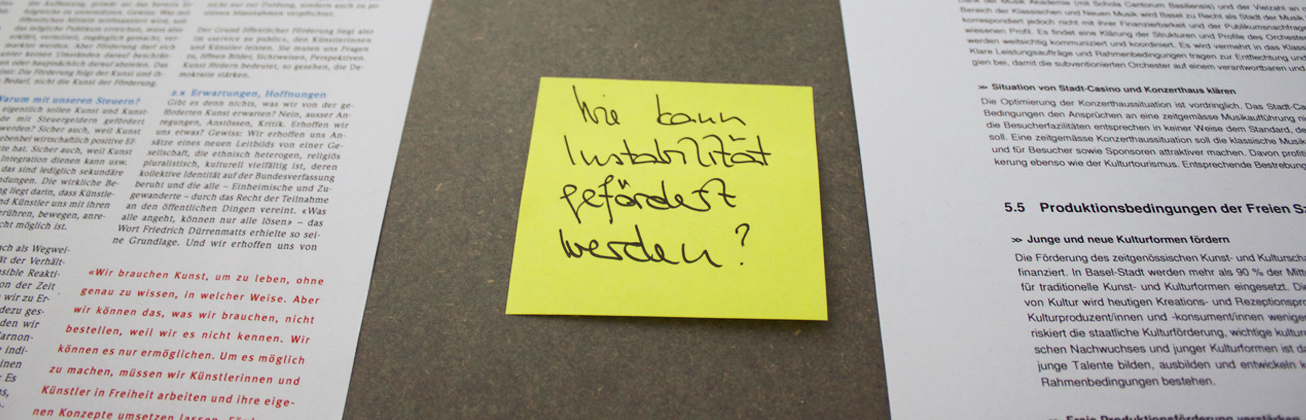 möglichste zu unternehmen. Gewiss: Was mit
öffentlichen Mitteln mitfinanziert wird, soll
das mögliche Publikum erreichen, muss also
erklärt, vermittelt, zugänglich gemacht, ver-
marktet werden. Aber Förderung darf sich
unter keinen Umständen darauf beschrän-
ken oder hauptsächlich darauf ableiten. Das
heisst: Die Förderung folgt der Kunst und ih-
rem Bedarf, nicht die Kunst der Förderung.
Warum mit unseren Steuern?
eigentlich sollen Kunst und Kunst-
de mit Steuergeldern gefördert
werden? Sicher auch, weil Kunst
ebenbei wirtschaftlich positive Ef-
te hat. Sicher auch, weil Kunst
Integration dienen kann usw.
das sind lediglich sekundäre
ndungen. Die wirkliche Be-
g liegt darin, dass Künstle-
d Künstler uns mit ihren
erühren, bewegen, anre-
cht möglich ist.
uch als Wegwei-
ät der Verhält-
nsible Reakti-
on der Zeit
wir zu Er-
dezu ges-
den wir
arnon-
e indi-
einen
Es
nicht nur zur Duldung, sondern auch zu po-
sitiven Massnahmen verpflichtet.
Der Grund öffentlicher Förderung liegt also
im «service au public», den Künstlerinnen
und Künstler leisten. Sie muten uns Fragen
zu, öffnen Bilder, Sichtweisen, Perspektiven.
Kunst fördern bedeutet, so gesehen, die De-
mokratie stärken.
2.8 Erwartungen, Hoffnungen
Gibt es denn nichts, was wir von der ge-
förderten Kunst erwarten? Nein, ausser An-
regungen, Anstössen, Kritik. Erhoffen wir
uns etwas? Gewiss: Wir erhoffen uns An-
sätze eines neuen Leitbilds von einer Ge-
sellschaft, die ethnisch heterogen, religiös
pluralistisch, kulturell vielfältig ist, deren
kollektive Identität auf der Bundesverfassung
beruht und die alle – Einheimische und Zu-
gewanderte – durch das Recht der Teilnahme
an den öffentlichen Dingen vereint. «Was
alle angeht, können nur alle lösen» – das
Wort Friedrich Dürrenmatts erhielte so sei-
ne Grundlage. Und wir erhoffen uns von
«Wir brauchen Kunst, um zu leben, ohne
genau zu wissen, in welcher Weise. Aber
wir können das, was wir brauchen, nicht
bestellen, weil wir es nicht kennen. Wir
können es nur ermöglichen. Um es möglich
zu machen, müssen wir Künstlerinnen und
Künstler in Freiheit arbeiten und ihre eige-
nen Konzepte umsetzen lassen.
Wie kann
Instabilität
gefördert
werden?
Dank der Musik Akademie (mit Schola Cantorum Basiliensis) und der Vielzahl an
Bereich der Klassischen und Neuen Musik wird Basel zu Recht als Stadt der Musik
korrespondiert jedoch nicht mit ihrer Finanzierbarkeit und der Publikumsnachfrage
wiesenen Profil. Es findet eine Klärung der Strukturen und Profile des Orchester
werden weitsichtig kommuniziert und koordiniert. Es wird vermehrt in das Klass
Klare Leistungsaufträge und Rahmenbedingungen tragen zur Entflechtung und
gien bei, damit die subventionierten Orchester auf einem verantwortbaren und
>> Situation von Stadt-Casino und Konzerthaus klären
Die Optimierung der Konzerthaussituation ist vordringlich. Das Stadt-Ca
Bedingungen den Ansprüchen an eine zeitgemässe Musikaufführung n
die Besucherfazilitäten entsprechen in keiner Weise dem Standard, de
soll. Eine zeitgemässe Konzerthaussituation soll die klassische Musik
und für Besucher sowie Sponsoren attraktiver machen. Davon profit
kerung ebenso wie der Kulturtourismus. Entsprechende Bestrebun
5.5 Produktionsbedingungen der Freien Sz
>> Junge und neue Kulturformen fördern
Die Förderung des zeitgenössischen Kunst- und Kulturscha
finanziert. In Basel-Stadt werden mehr als 90 % der Mitt
für traditionelle Kunst- und Kulturformen eingesetzt. Di
von Kultur wird heutigen Kreations- und Rezeptionspr
Kulturproduzent/innen und -konsument/innen wenige
riskiert die staatliche Kulturförderung, wichtige kultur
schen Nachwuchses und junger Kulturformen ist da
junge Talente bilden, ausbilden und entwickeln k
Rahmenbedingungen bestehen.
>> Freie Produktionsförderung verstärken